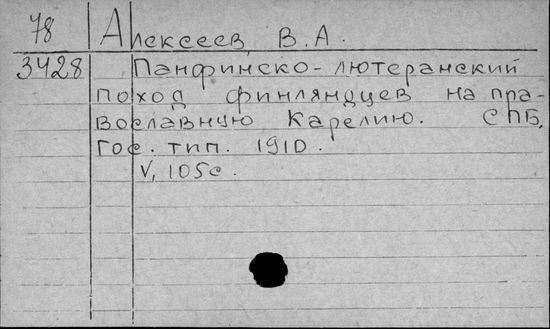 78 Алексеев, В. А.
3428 Панфинско-лютеранский
поход финляндцев на пра-
вославную Карелию. СПБ,
Гос. тип. 1910.
V, 105с.